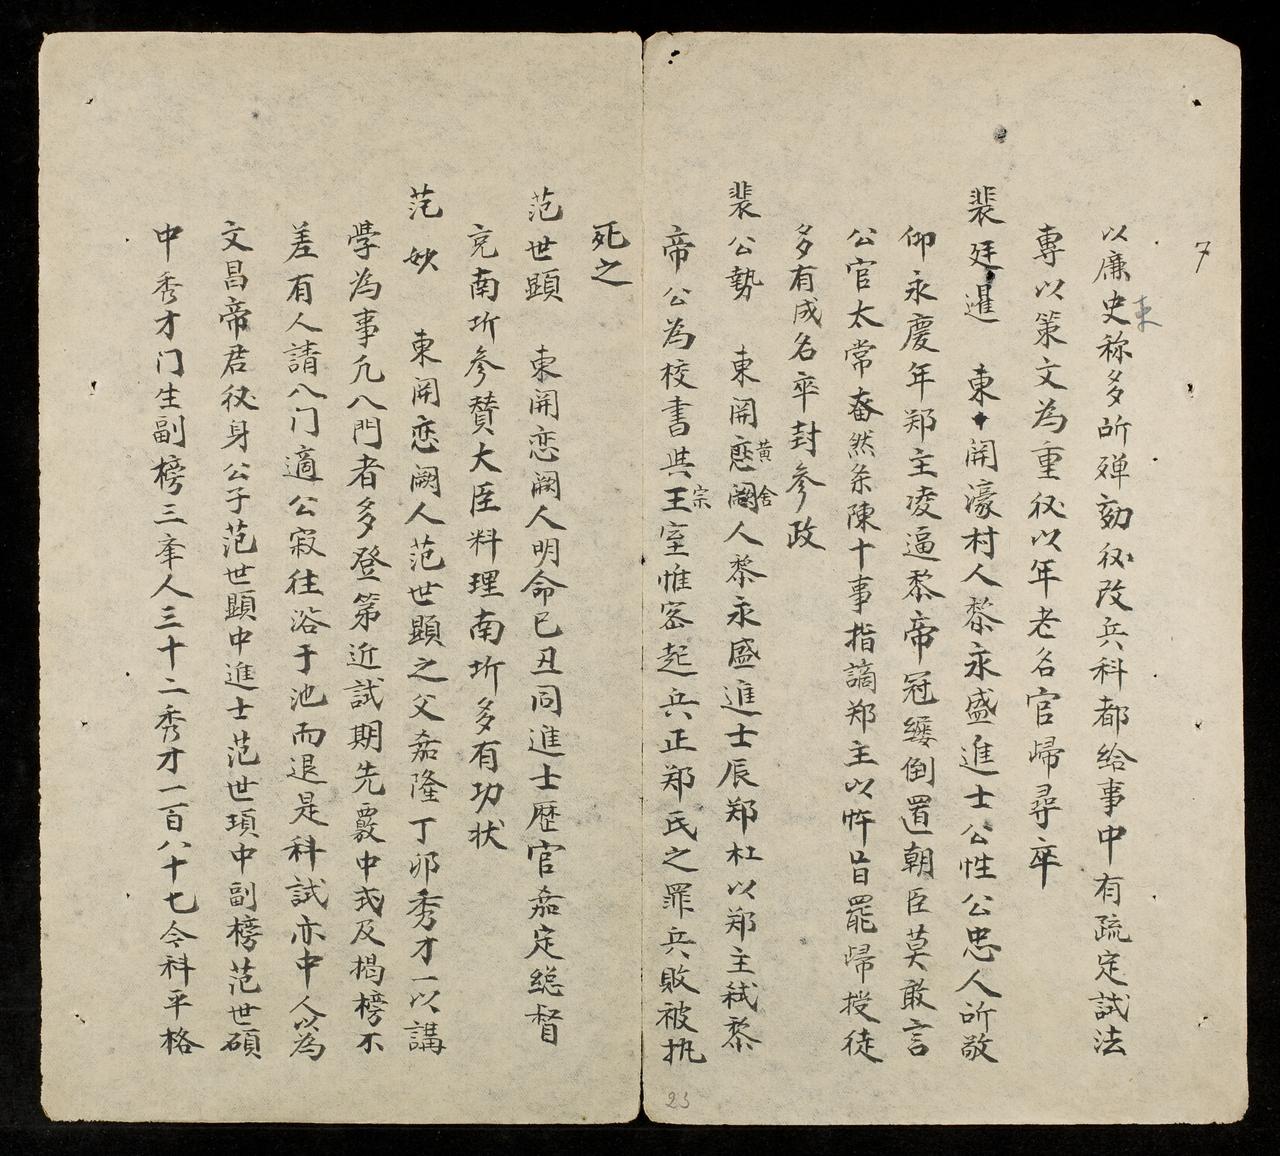 7
以廉史称多所殫劾後改兵科都給事中有疏定試法
吏
專以策文為重後以年老名官帰尋卒
裴廷暹 東開濠村人黎永盛進士公性公忠人所敬
仰永慶年郑主凌逼黎帝冠纓倒置朝臣莫敢言
公官太常奮然条陳十事指謫郑主以忤旨罷帰授徒
多有成名卒封参政
裴公勢 東開戀闕人黎永盛進士辰郑杜以郑主弑黎
黄舍
帝公為校書與王室惟密起兵正郑氏之罪兵敗被执
宗
死之
范世顕 東開恋阙人明命己丑同進士歴官嘉定総督
充南圻参賛大臣料理南圻多有功状
范妙 東開恋阙人范世顕之父嘉隆丁卯秀才一以講
學為事凢入門者多登第近試期先覈中式及揭榜不
差有人請入门適公寂往浴于池而退是科試亦中人以為
文昌帝君後身公子范世顕中進士范世項中副榜范世碩
中秀才门生副榜三舉人三十二秀才一百八十七令科平格
23